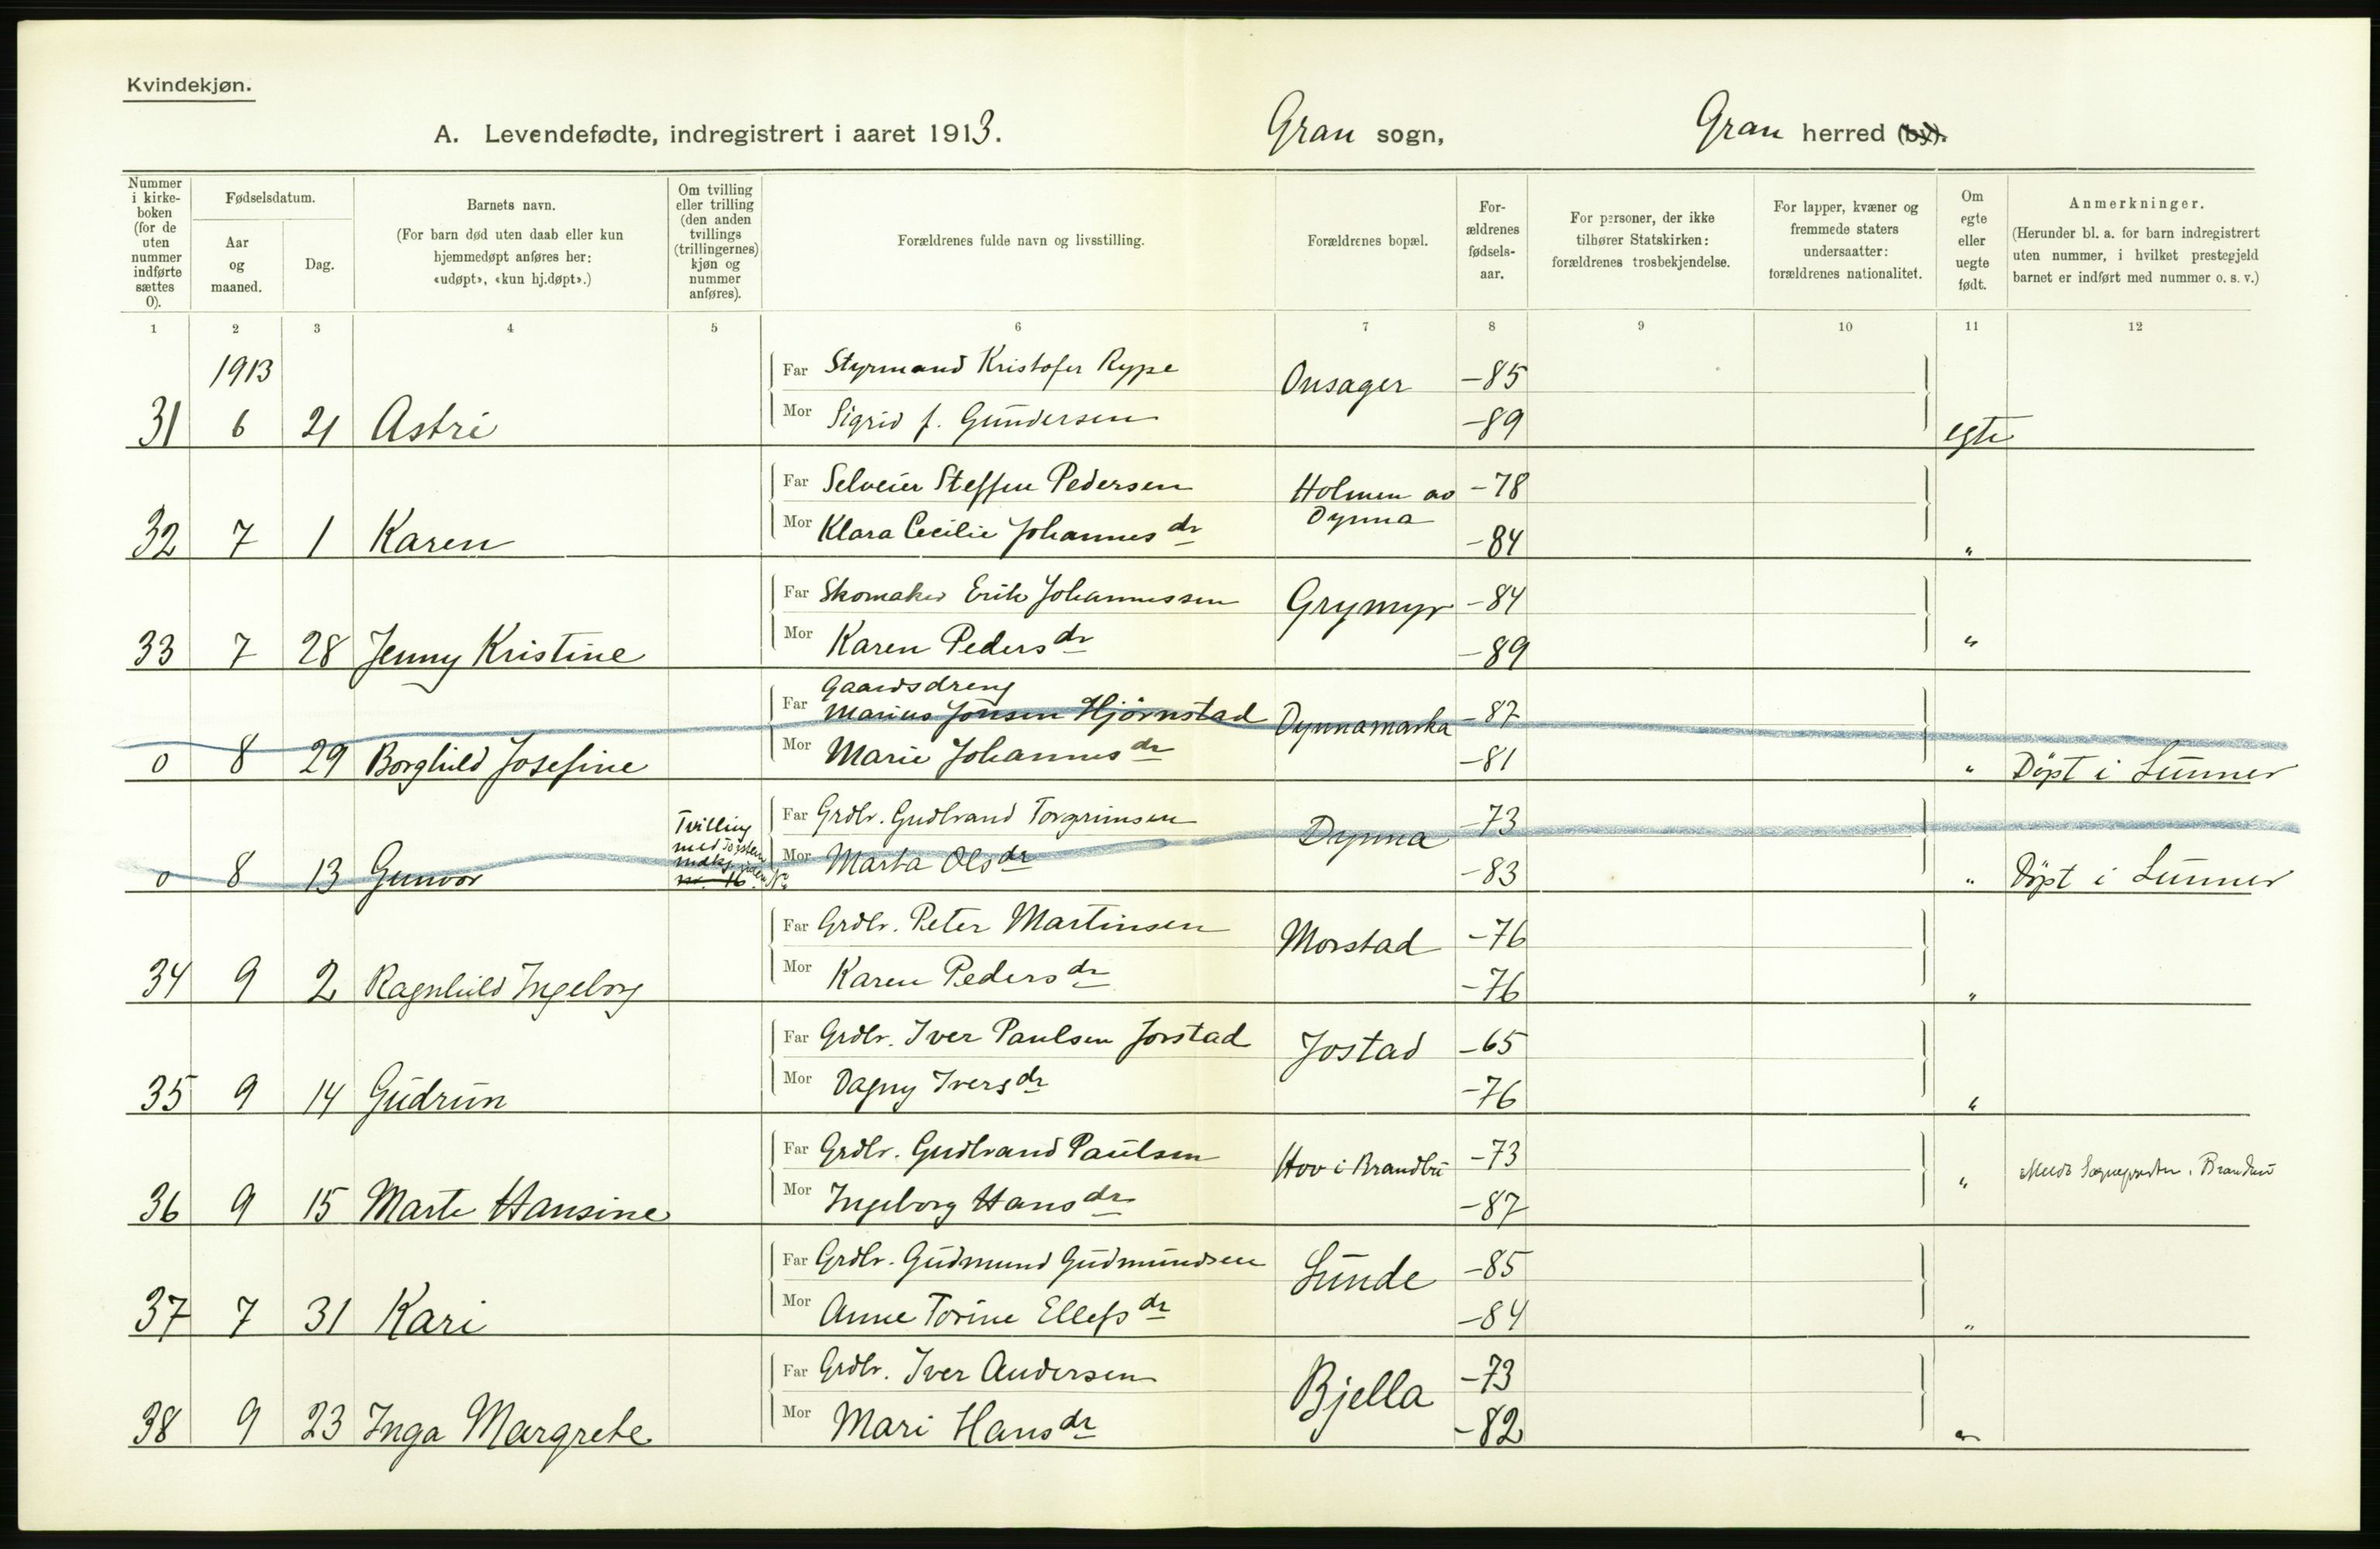 Kvindekjøn.
A. Levendefødte, indregistrert i aaret 1913. Gran sogn, Gran herred (by).
Nummer i kirkeboken (for de uten nummer indførte sættes 0).
Fødselsdatum.
Aar og maaned.
Dag.
Barnets navn.
(For barn død uten daab eller kun hjemmedøpt anføres her: «udøpt», «kun hj.døpt».)
Om tvilling eller trilling (den anden tvillings (trillingernes) kjøn og nummer anføres).
Forældrenes fulde navn og livsstilling.
Forældrenes bopæl.
Forældrenes fødselsaar.
For personer, der ikke tilhører Statskirken: forældrenes trosbekjendelse.
For lapper, kvæner og fremmede staters undersaatter: forældrenes nationalitet.
Om egte eller uegte født.
Anmerkninger.
(Herunder bl. a. for barn indregistrert uten nummer, i hvilket prestegjeld barnet er indført med nummer o. s. v.)
1 2 3 4 5 6 7 8 9 10 11 12
1913
Far Styrmand Kristofer Rype Onsager -85
31 6 21 Astri Mor Sigrid f. Gundersen -89 egte
Far Selveier Steffen Pedersen Holmen av Dynna -78
32 7 1 Karen Mor Klara Cecilie Johannesdr -84 "
Far Skomaker Erik Johannessen Grymyr -84
33 7 28 Jenny Kristine Mor Karen Pedersdr -89 "
Far Gaardsdreng Marius Jonsen Hjørnstad Dynnamarka -87
0 8 29 Borghild Josefine Mor Marie Johannesdr -81 " Döpt i Lunner
Tvilling med
Far Grdbr. Gudbrand Torgrimsen Dynna -73
0 8 13 Gunvor Mor Marta Olsdr -83 " Döpt i Lunner
Far Grdbr. Peter Martinsen Morstad -76
34 9 2 Ragnhild Ingeborg Mor Karen Pedersdr -76 "
Far Grdbr. Iver Paulsen Jorstad Jostad -65
35 9 14 Gudrun Mor Dagny Iversdr -76 "
Far Grdbr. Gudbrand Paulsen Hov i Brandbu -73
36 9 15 Marte Hansine Mor Ingeborg Hansdr -87 "
Far Grdbr. Gudmund Gudmundsen Lunde -85
37 7 31 Kari Mor Anne Torine Ellefsdr -84 "
Far Grdbr. Iver Andersen Bjella -73
38 9 23 Inga Margrete Mor Mari Hansdr -82 "